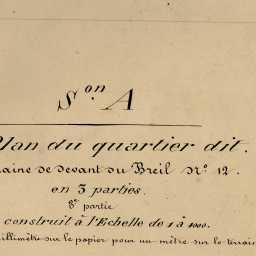 S.on A
Plan du quartier dit.
aine de devant du Breil N.o 12.
en 3 parties.
3e partie
construit à l'Echelle de 1 à 1000.
illimètre sur le papier pour un mètre sur le terrain